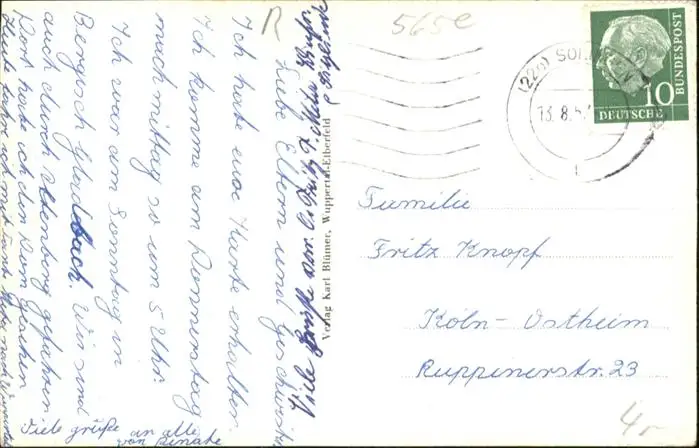 R
565e
(22a) SOLINGEN
13. 8. 5
10
DEUTSCHE
BUNDESPOST
Liebe Eltern und Geschwister
Ich habe eure Karte erhalten.
Ich komme am Donnerstag
nachmittag so um 5 Uhr.
Ich war am Sonntag in
Bergisch Gladbach. Wir sind
auch durch Altenberg gefahren
Dort habe ich den Dom gesehen
Heute fahre ich mit Tante
Viele grüße an alle
von Renate
Viele Grüße von O. Fritz T. Mela
Verlag Karl Blümer, Wuppertal-Elberfeld
Familie
Fritz Knopf
Köln-Ostheim
Ruppinerstr. 23
4,-